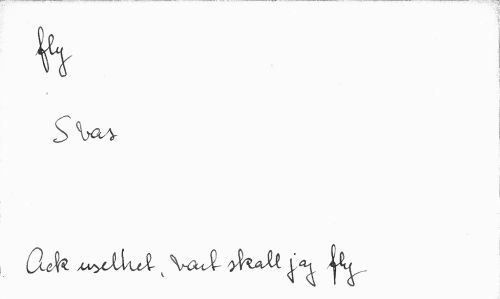 fly
Svas
Ack uselhet, vart skall jag fly